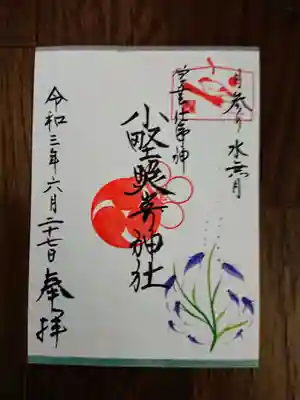 月参り 水無月
学芸仕事神
小野照崎神社
令和三年六月二十七日 奉拝